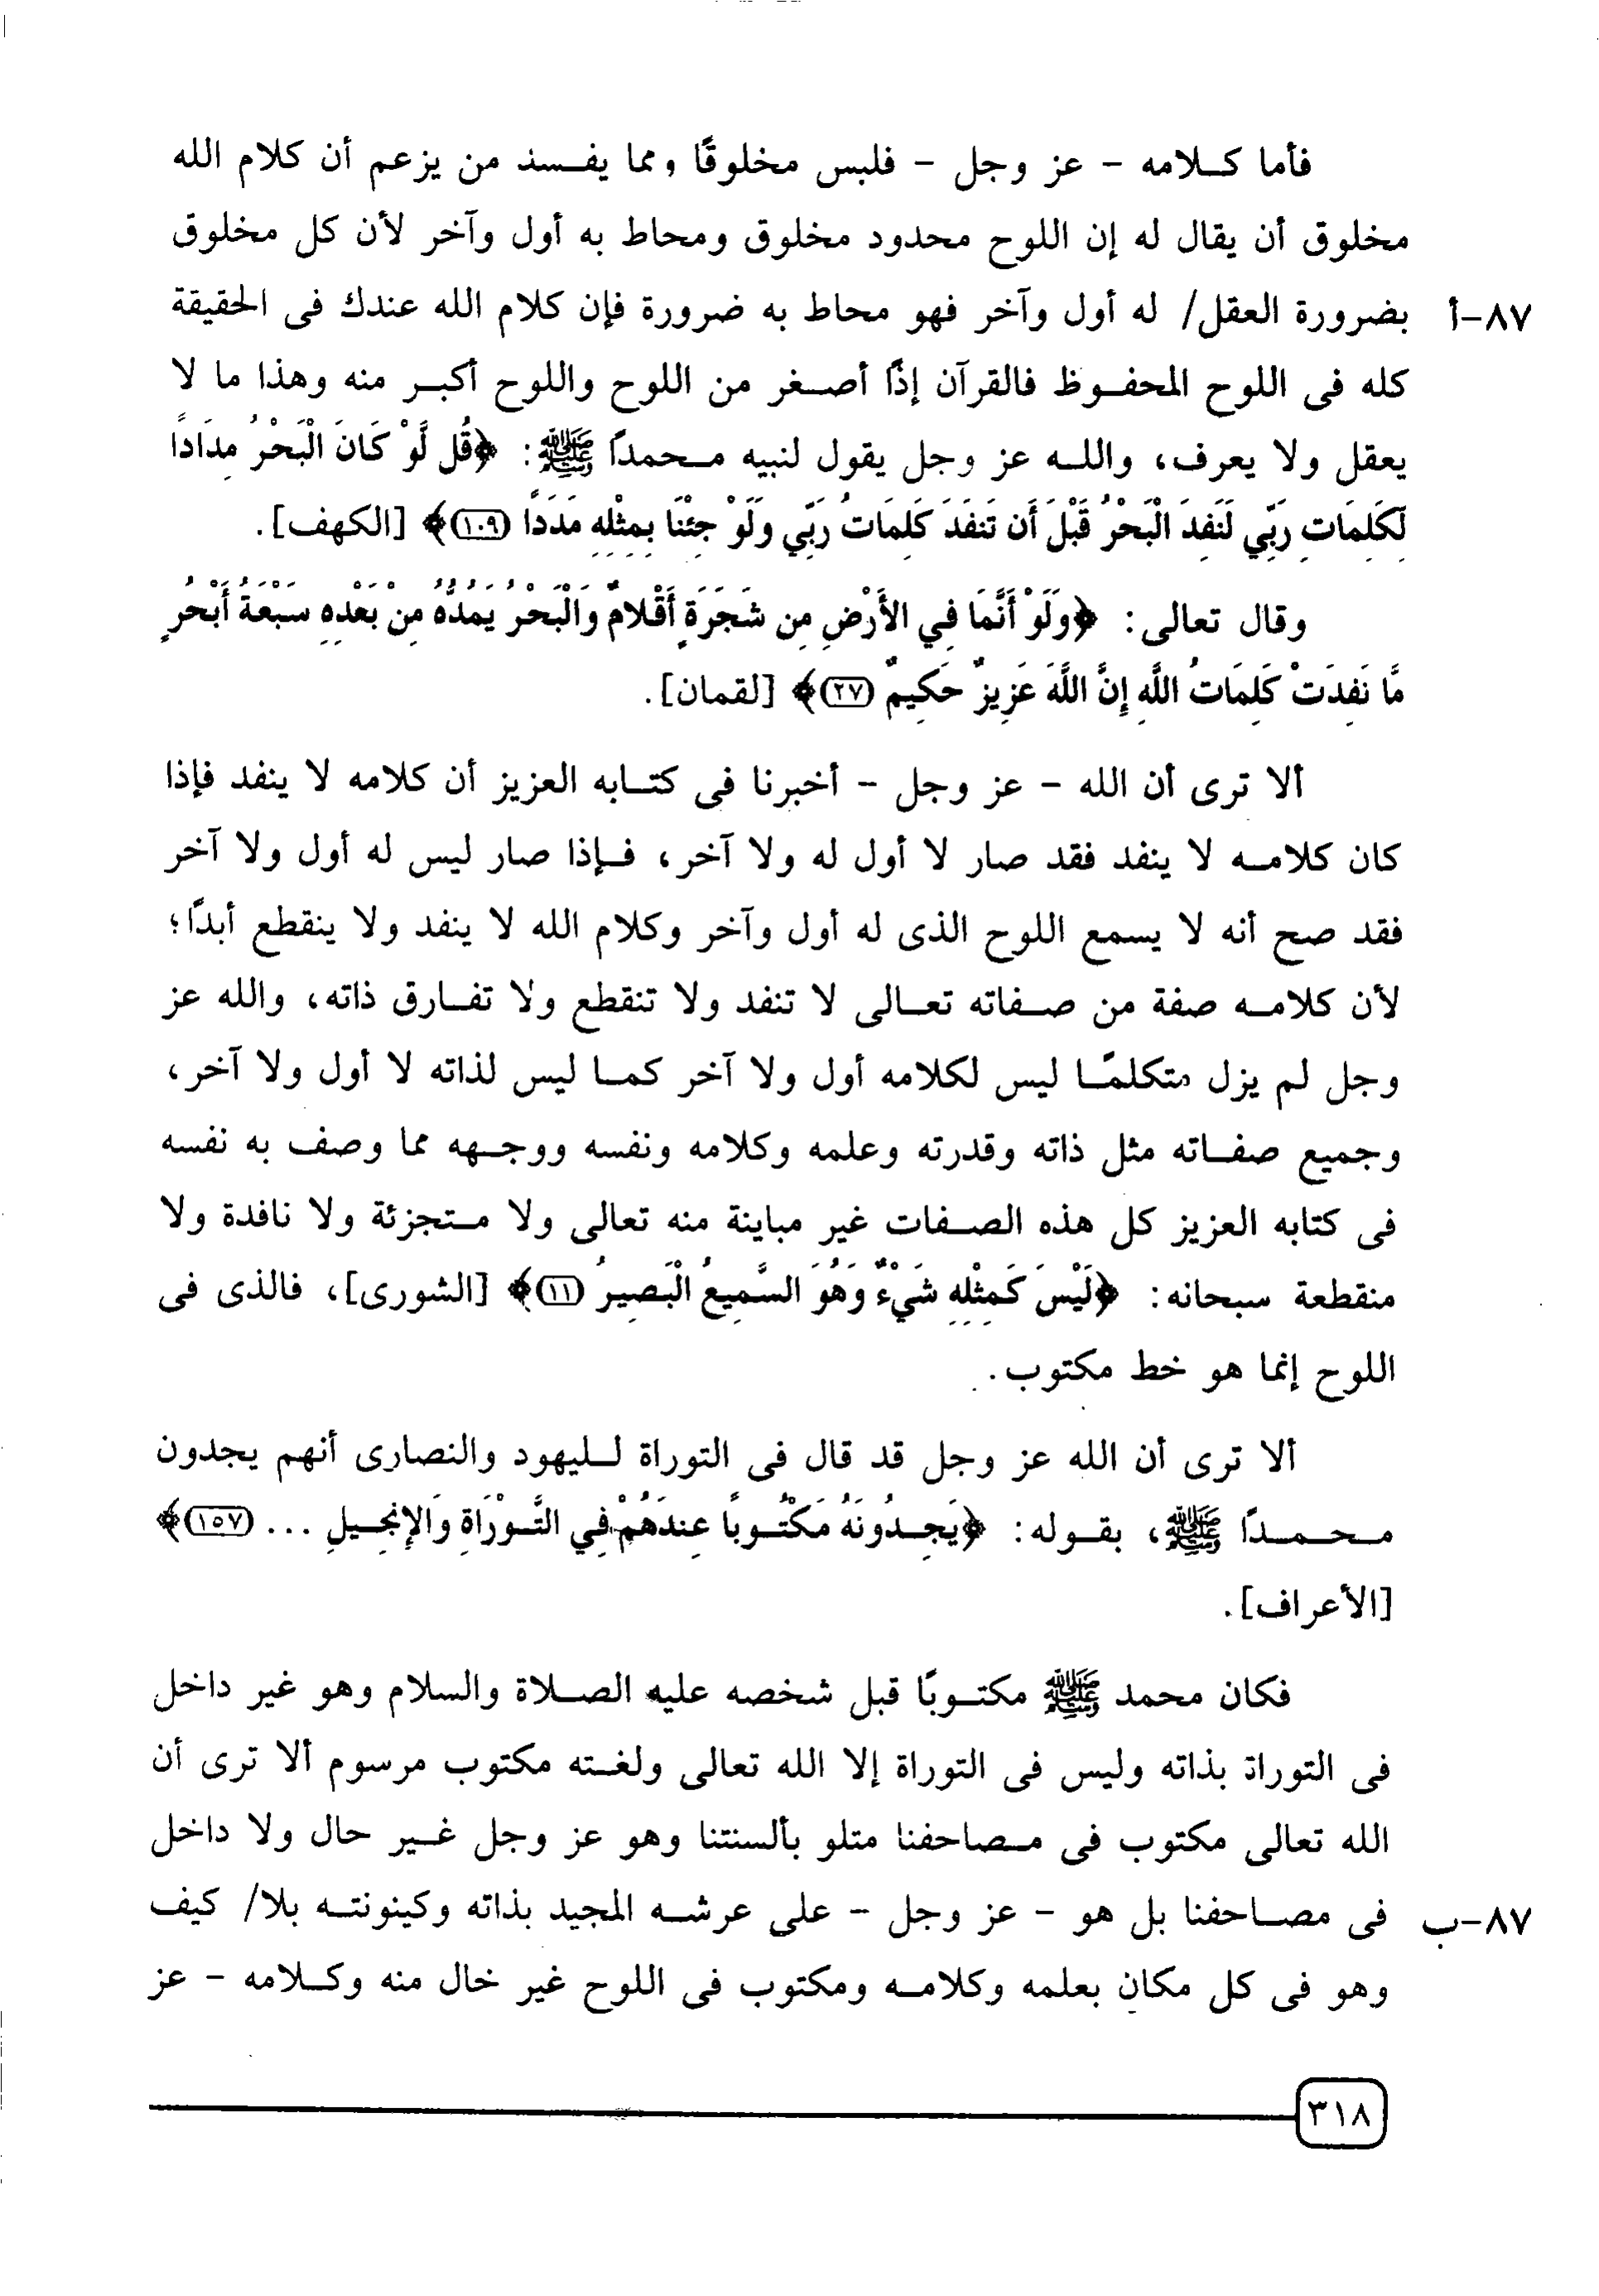 فأما كلامه - عز وجل - فليس مخلوقًا ومما يفسد من يزعم أن كلام الله
مخلوق أن يقال له إن اللوح محدود مخلوق ومحاط به أول وآخر لأن كل مخلوق
٨٧-أ بضرورة العقل/ له أول وآخر فهو محاط به ضرورة فإن كلام الله عندك فى الحقيقة
كله فى اللوح المحفوظ فالقرآن إذًا أصغر من اللوح واللوح أكبر منه وهذا ما لا
يعقل ولا يعرف، والله عز وجل يقول لنبيه محمدًا ﷺ: ﴿قُل لَّوْ كَانَ الْبَحْرُ مِدَادًا
لِّكَلِمَاتِ رَبِّي لَنَفِدَ الْبَحْرُ قَبْلَ أَن تَنفَدَ كَلِمَاتُ رَبِّي وَلَوْ جِئْنَا بِمِثْلِهِ مَدَدًا (١٠٩)﴾ [الكهف].
وقال تعالى: ﴿وَلَوْ أَنَّمَا فِي الأَرْضِ مِن شَجَرَةٍ أَقْلامٌ وَالْبَحْرُ يَمُدُّهُ مِنْ بَعْدِهِ سَبْعَةُ أَبْحُرٍ
مَّا نَفِدَتْ كَلِمَاتُ اللَّهِ إِنَّ اللَّهَ عَزِيزٌ حَكِيمٌ (٢٧)﴾ [لقمان].
ألا ترى أن الله - عز وجل - أخبرنا فى كتابه العزيز أن كلامه لا ينفد فإذا
كان كلامه لا ينفد فقد صار لا أول له ولا آخر، فإذا صار ليس له أول ولا آخر
فقد صح أنه لا يسمع اللوح الذى له أول وآخر وكلام الله لا ينفد ولا ينقطع أبدًا؛
لأن كلامه صفة من صفاته تعالى لا تنفد ولا تنقطع ولا تفارق ذاته، والله عز
وجل لم يزل متكلمًا ليس لكلامه أول ولا آخر كما ليس لذاته لا أول ولا آخر،
وجميع صفاته مثل ذاته وقدرته وعلمه وكلامه ونفسه ووجهه مما وصف به نفسه
فى كتابه العزيز كل هذه الصفات غير مباينة منه تعالى ولا متجزئة ولا نافدة ولا
منقطعة سبحانه: ﴿لَيْسَ كَمِثْلِهِ شَيْءٌ وَهُوَ السَّمِيعُ الْبَصِيرُ (١١)﴾ [الشورى]، فالذى فى
اللوح إنما هو خط مكتوب.
ألا ترى أن الله عز وجل قد قال فى التوراة لليهود والنصارى أنهم يجدون
محمدًا ﷺ، بقوله: ﴿يَجِدُونَهُ مَكْتُوبًا عِندَهُمْ فِي التَّوْرَاةِ وَالإِنجِيلِ ... (١٥٧)﴾
[الأعراف].
فكان محمد ﷺ مكتوبًا قبل شخصه عليه الصلاة والسلام وهو غير داخل
فى التوراة بذاته وليس فى التوراة إلا الله تعالى ولغته مكتوب مرسوم ألا ترى أن
الله تعالى مكتوب فى مصاحفنا متلو بألسنتنا وهو عز وجل غير حال ولا داخل
٨٧-ب فى مصاحفنا بل هو - عز وجل - على عرشه المجيد بذاته وكينونته بلا/ كيف
وهو فى كل مكان بعلمه وكلامه ومكتوب فى اللوح غير خال منه وكلامه - عز
٣١٨